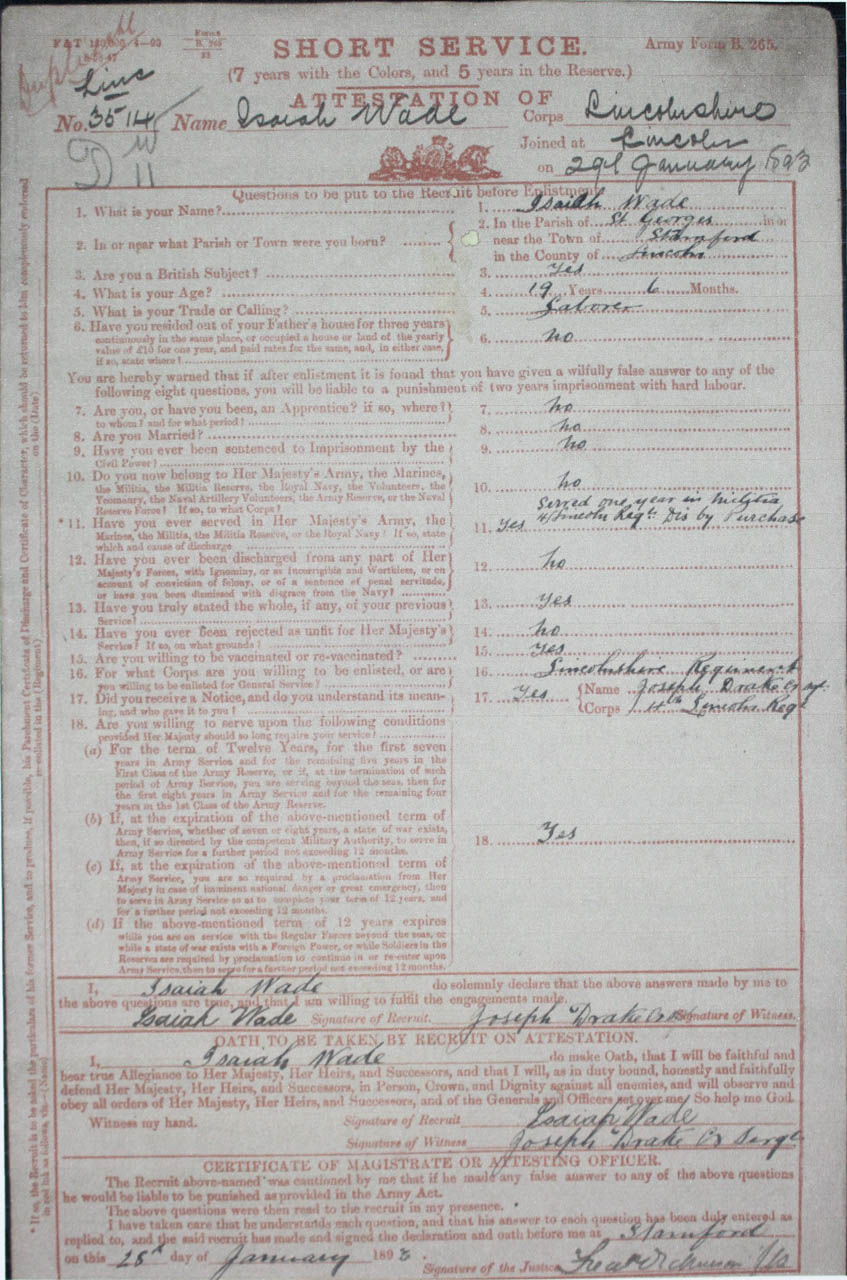 Duplicate
F&T 4—93
Forms
B. 265
SHORT SERVICE.
Army Form B. 265.
(7 years with the Colors, and 5 years in the Reserve.)
Linc
ATTESTATION OF
No. 3514 Name Isaiah Wade Corps Lincolnshire
Joined at Lincoln
on 29th January 1893
D W
11
Questions to be put to the Recruit before Enlistment.
1. What is your Name? 1. Isaiah Wade
2. In or near what Parish or Town were you born? 2. In the Parish of St Georges in or
near the Town of Stamford
in the County of Lincoln
3. Are you a British Subject? 3. Yes
4. What is your Age? 4. 19 Years 6 Months.
5. What is your Trade or Calling? 5. Laborer
6. Have you resided out of your Father's house for three years
continuously in the same place, or occupied a house or land of the yearly
value of £10 for one year, and paid rates for the same, and, in either case,
if so, state where? 6. no
You are hereby warned that if after enlistment it is found that you have given a wilfully false answer to any of the
following eight questions, you will be liable to a punishment of two years imprisonment with hard labour.
7. Are you, or have you been, an Apprentice? if so, where?
to whom? and for what period? 7. no
8. Are you Married? 8. no
9. Have you ever been sentenced to Imprisonment by the
Civil Power? 9. no
10. Do you now belong to Her Majesty's Army, the Marines,
the Militia, the Militia Reserve, the Royal Navy, the Volunteers, the
Yeomanry, the Naval Artillery Volunteers, the Army Reserve, or the Naval
Reserve Force? If so, to what Corps? 10. no
*11. Have you ever served in Her Majesty's Army, the
Marines, the Militia, the Militia Reserve, or the Royal Navy? If so, state
which and cause of discharge 11. Yes Served one year in Militia
4/Lincoln Regt. Dis by Purchase
12. Have you ever been discharged from any part of Her
Majesty's Forces, with Ignominy, or as Incorrigible and Worthless, or on
account of conviction of felony, or of a sentence of penal servitude,
or have you been dismissed with disgrace from the Navy? 12. no
13. Have you truly stated the whole, if any, of your previous
Service? 13. Yes
14. Have you ever been rejected as unfit for Her Majesty's
Service? If so, on what grounds? 14. no
15. Are you willing to be vaccinated or re-vaccinated? 15. Yes
16. For what Corps are you willing to be enlisted, or are
you willing to be enlisted for General Service? 16. Lincolnshire Regiment
17. Did you receive a Notice, and do you understand its mean-
ing, and who gave it to you? 17. Yes Name Joseph Drake Cr Sgt
Corps 4th Lincoln Regt
18. Are you willing to serve upon the following conditions
provided Her Majesty should so long require your service?
(a) For the term of Twelve Years, for the first seven
years in Army Service and for the remaining five years in the
First Class of the Army Reserve, or if, at the termination of such
period of Army Service, you are serving beyond the seas, then for
the first eight years in Army Service and for the remaining four
years in the 1st Class of the Army Reserve.
(b) If, at the expiration of the above-mentioned term of
Army Service, whether of seven or eight years, a state of war exists,
then, if so directed by the competent Military Authority, to serve in
Army Service for a further period not exceeding 12 months.
(c) If, at the expiration of the above-mentioned term of
Army Service, you are so required by a proclamation from Her
Majesty in case of imminent national danger or great emergency, then
to serve in Army Service so as to complete your term of 12 years, and
for a further period not exceeding 12 months.
(d) If the above-mentioned term of 12 years expires
while you are on service with the Regular Forces beyond the seas, or
while a state of war exists with a Foreign Power, or while Soldiers in the
Reserves are required by proclamation to continue in or re-enter upon
Army Service, then to serve for a further period not exceeding 12 months.
18. Yes
I, Isaiah Wade do solemnly declare that the above answers made by me to
the above questions are true, and that I am willing to fulfil the engagements made.
Isaiah Wade Signature of Recruit. Joseph Drake Cr Signature of Witness.
OATH TO BE TAKEN BY RECRUIT ON ATTESTATION.
I, Isaiah Wade do make Oath, that I will be faithful and
bear true Allegiance to Her Majesty, Her Heirs, and Successors, and that I will, as in duty bound, honestly and faithfully
defend Her Majesty, Her Heirs, and Successors, in Person, Crown, and Dignity against all enemies, and will observe and
obey all orders of Her Majesty, Her Heirs, and Successors, and of the Generals and Officers set over me. So help me God.
Witness my hand. Signature of Recruit Isaiah Wade
Signature of Witness Joseph Drake Cr Sergt
CERTIFICATE OF MAGISTRATE OR ATTESTING OFFICER.
The Recruit above-named was cautioned by me that if he made any false answer to any of the above questions
he would be liable to be punished as provided in the Army Act.
The above questions were then read to the recruit in my presence.
I have taken care that he understands each question, and that his answer to each question has been duly entered as
replied to, and the said recruit has made and signed the declaration and oath before me at Stamford
on this 28th day of January 1893.
Signature of the Justice
* If so, the Recruit is to be asked the particulars of his former Service, and to produce, if possible, his Parchment Certificate of Discharge and Certificate of Character, which should be returned to him conspicuously endorsed
in red ink as follows, viz.—(Name) re-enlisted in the (Regiment) on the (Date)